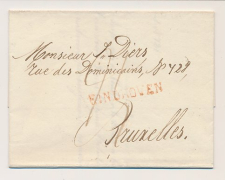 Monsieur J. Diers,
Rue des Dominicains, No 428,
EINDHOVEN
Bruxelles.